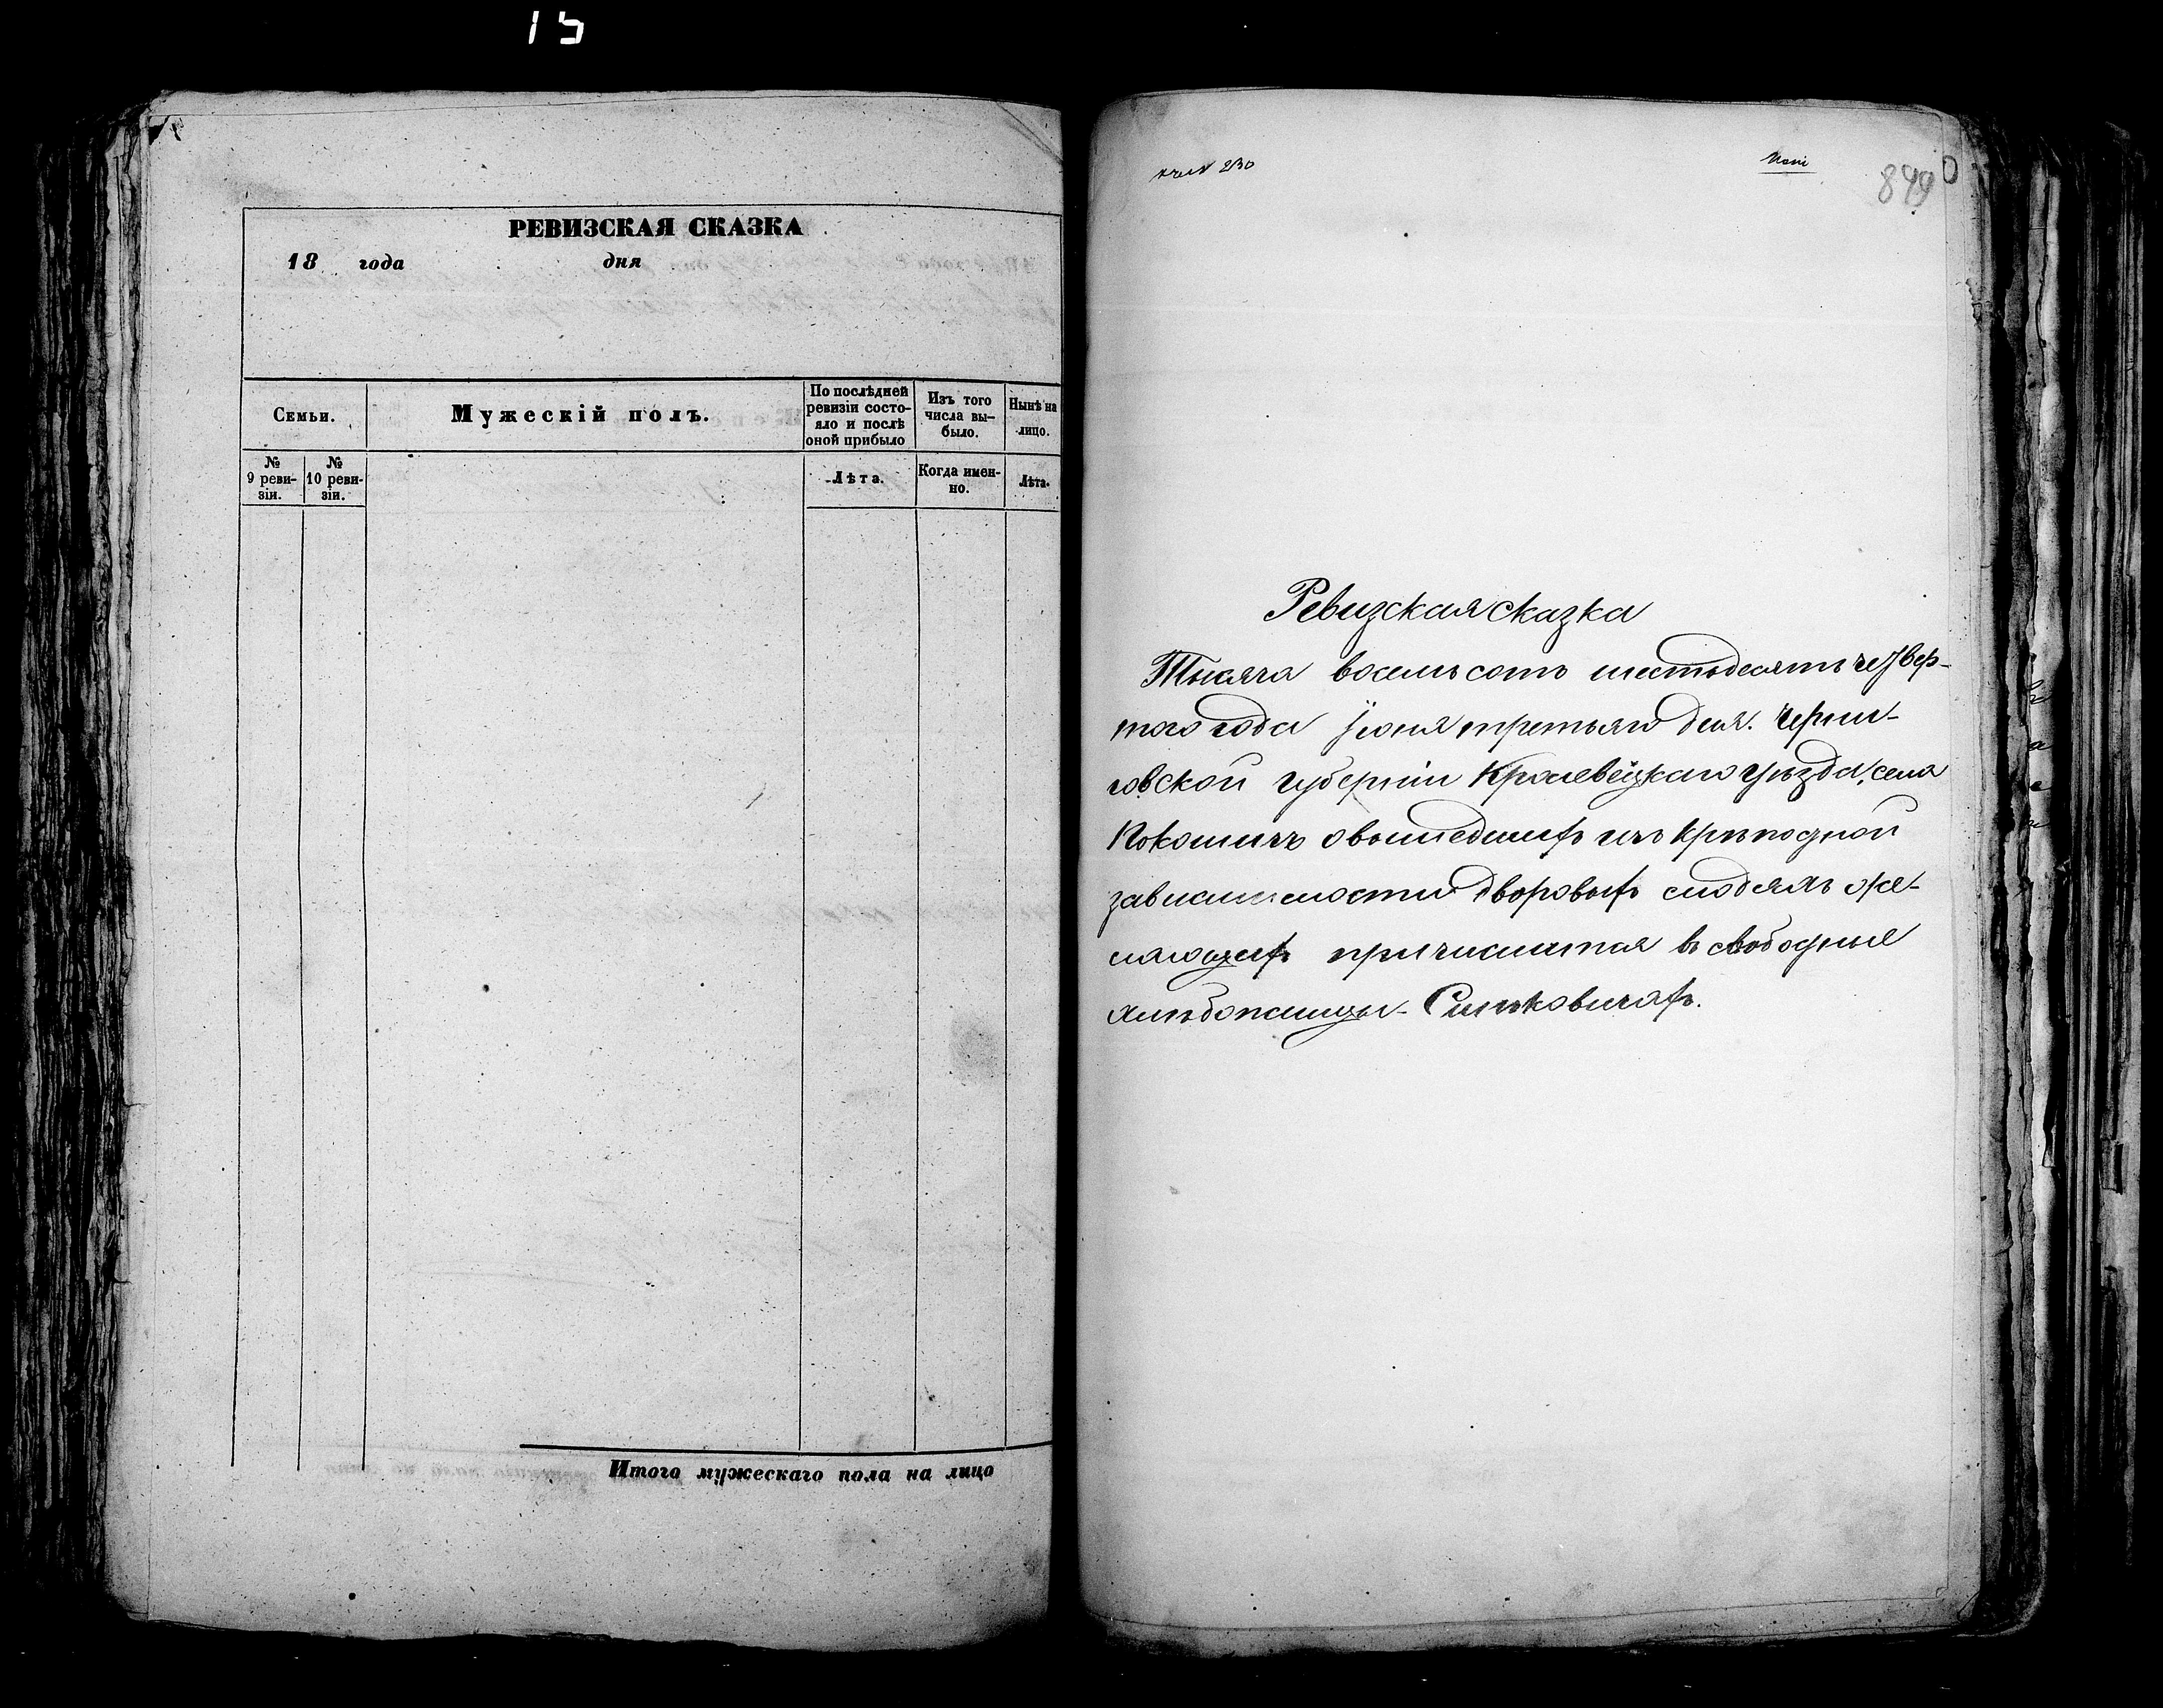 15
РЕВИЗСКАЯ СКАЗКА
18 года дня
Семьи.
Мужескій полъ.
По послѣдней
ревизіи состо-
яло и послѣ
оной прибыло
Изъ того
числа вы-
было.
Нынѣ на
лицо.
№
9 реви-
зіи.
№
10 реви-
зіи.
Лѣта.
Когда имен-
но.
Лѣта.
Итого мужескаго пола на лицо
230
849
Ревизская сказка
Тысяча восемьсотъ шестьдесятъ четвер-
того года Іюня третьяго дня. Черни-
говской губерніи Кролевецкаго уѣзда, села
Кокошичъ о вышедшихъ изъ крѣпостной
зависимости дворовыхъ людяхъ же-
лающихъ причислится въ свободные
хлѣбопашцы - Синьковичахъ.